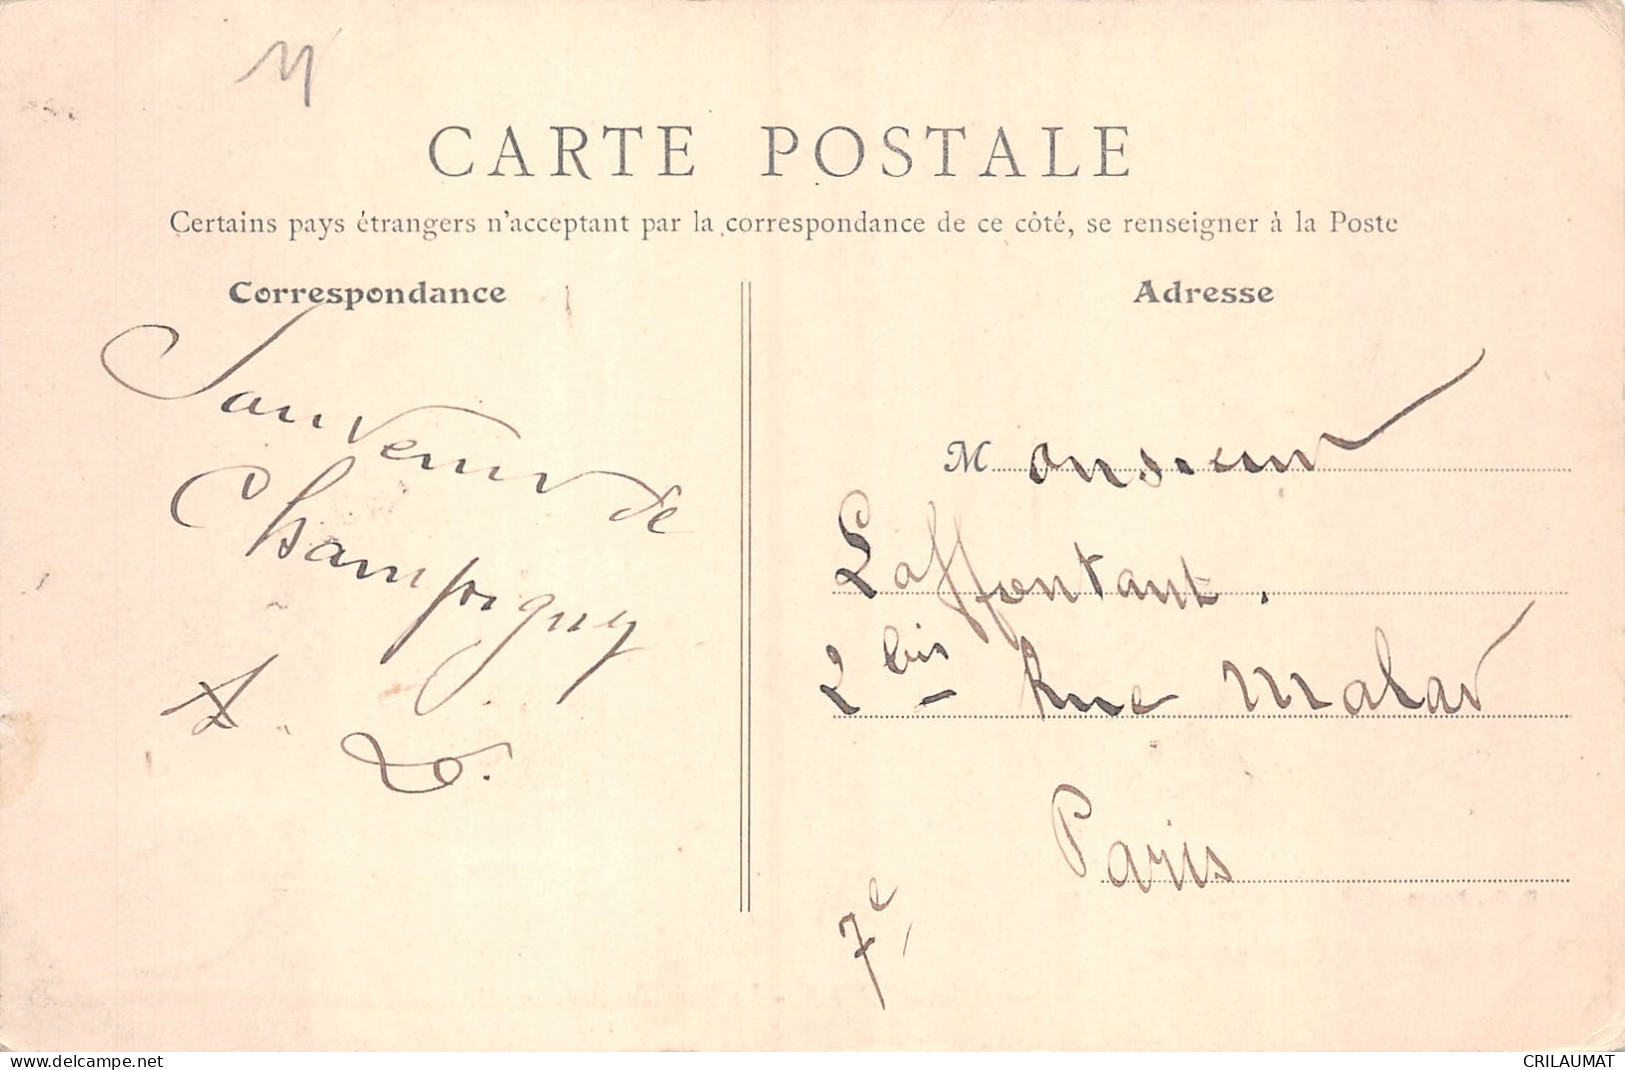 CARTE POSTALE
Certains pays étrangers n'acceptant par la correspondance de ce côté, se renseigner à la Poste
Correspondance
Souvenir de
Champigny
Adresse
Monsieur
Laffontant.
2 bis Rue Malar
Paris
7e
www.delcampe.net
CRILAUMAT